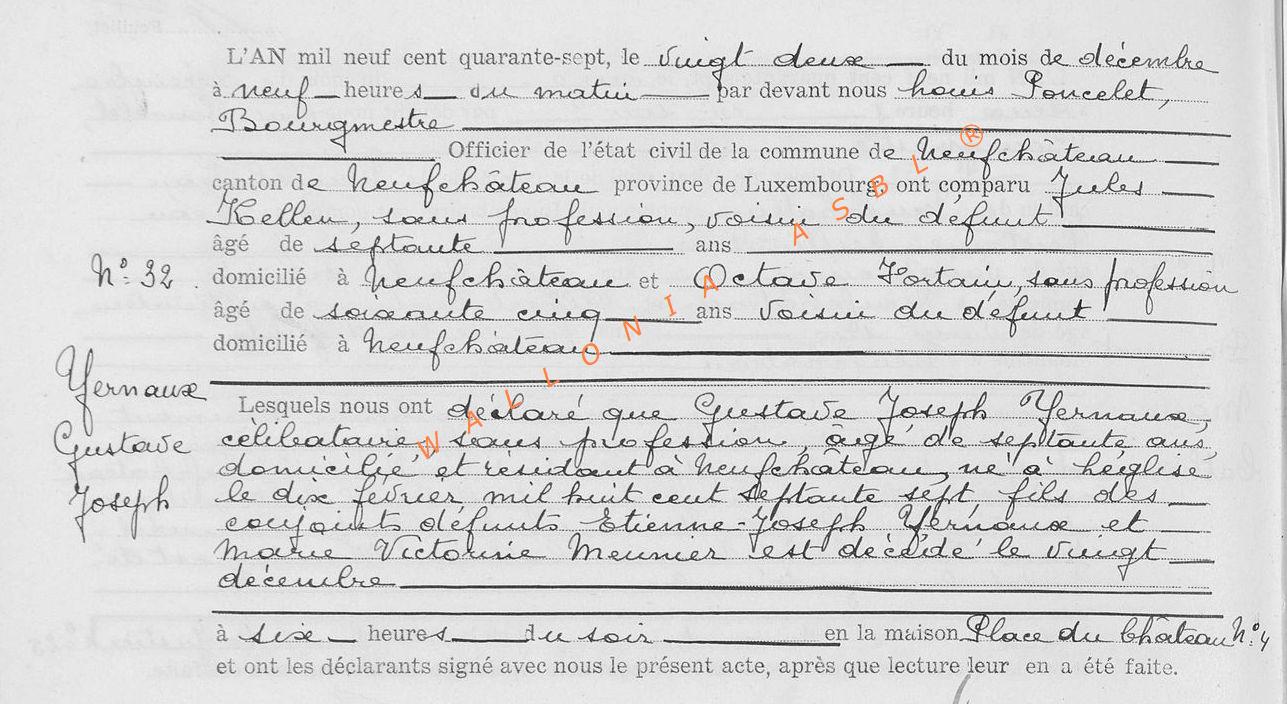 L'AN mil neuf cent quarante-sept, le vingt deux du mois de décembre
à neuf heures du matin par devant nous Louis Poncelet,
Bourgmestre
Officier de l'état civil de la commune de Neufchâteau
canton de Neufchâteau province de Luxembourg, ont comparu Jules
Kellen, sans profession, voisin du défunt
âgé de septante ans
N° 32
domicilié à Neufchâteau et Octave Fortain, sans profession
âgé de soixante cinq ans voisin du défunt
domicilié à Neufchâteau
Yernaux
Gustave
Joseph
Lesquels nous ont déclaré que Gustave Joseph Yernaux,
célibataire, sans profession, âgé de septante ans
domicilié et résidant à Neufchâteau, né à Léglise
le dix février mil huit cent septante sept fils des
conjoints défunts Etienne-Joseph Yernaux et
Marie Victorine Meunier est décédé le vingt
décembre
à six heures du soir en la maison Place du Château N° 4
et ont les déclarants signé avec nous le présent acte, après que lecture leur en a été faite.
WALLONIA ASBL ®